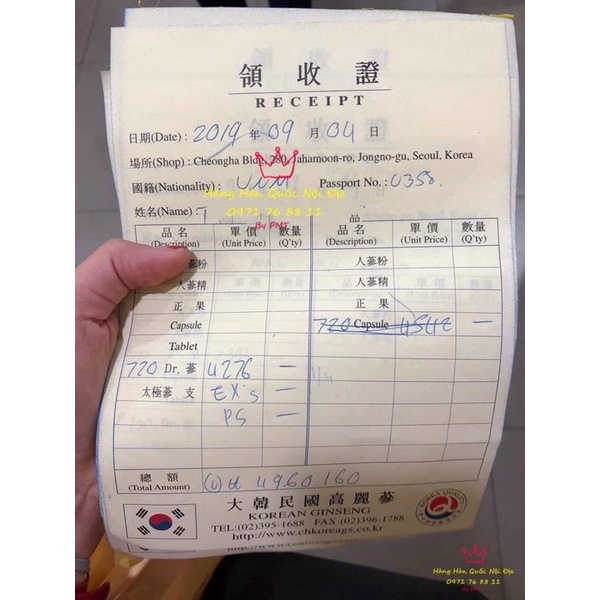 領 收 證
RECEIPT
日期(Date) : 2019 年 09 月 04 日
場所(Shop) : Cheongha Bldg, 280, Jahamoon-ro, Jongno-gu, Seoul, Korea
國籍(Nationality) : Passport No. : 0358
Hàng Hàn Quốc Nội Địa
姓名(Name) :
0971 76 88 11
By PMT
品 名 單 價 數 量 品 名 單 價 數 量
(Description) (Unit Price) (Q'ty) (Description) (Unit Price) (Q'ty)
人蔘粉 人蔘粉
人蔘精 人蔘精
正 果 正 果
Capsule 720 Capsule 4542 —
Tablet
720 Dr. 蔘 4276 —
太極蔘 支 EX's —
PS —
總 額
(Total Amount) 4960160
大韓民國高麗蔘
KOREAN GINSENG
TEL:(02)395-1688 FAX:(02)396-1788
http://www.chkoreags.co.kr
KOREA QUALITY
Hàng Hàn Quốc Nội Địa
0971 76 88 11
By PMT